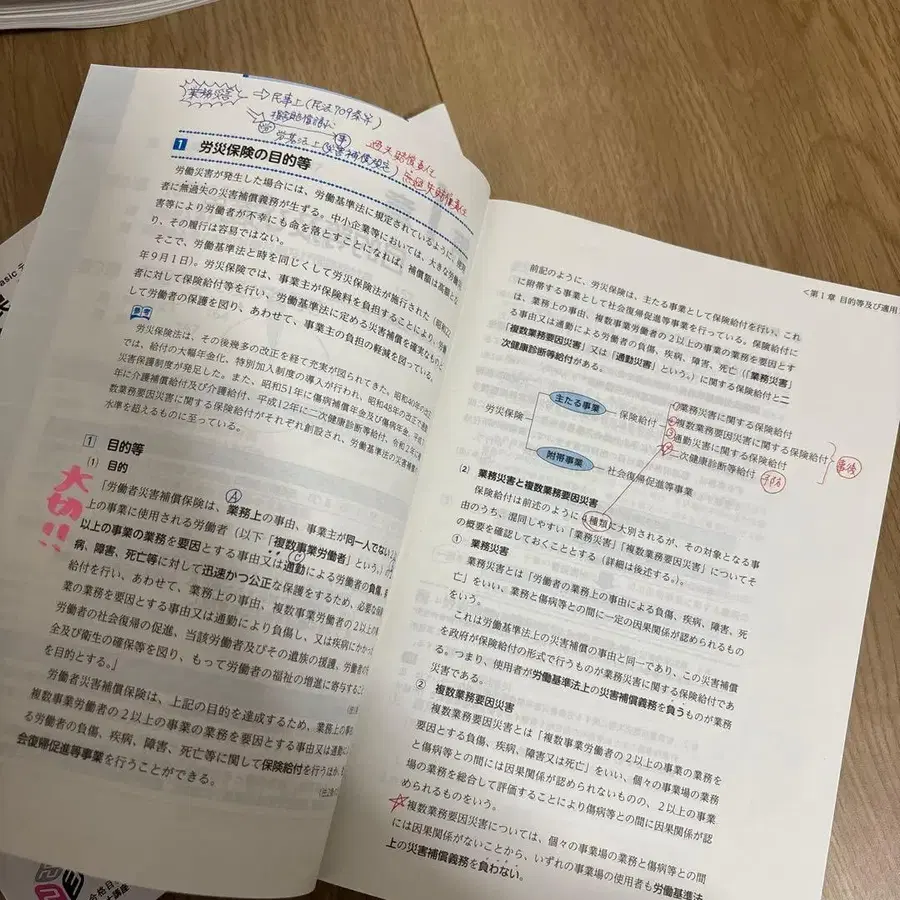 業務災害 → 民事上(民法709条等)
損害賠償請求
労基法上(災害補償規定)
過失賠償責任
無過失賠償責任
1 労災保険の目的等
労働災害が発生した場合には、労働基準法に規定されているように、使用
者に無過失の災害補償義務が生ずる。中小企業等においては、大きな労働災
害等により労働者が不幸にも命を落とすことになれば、補償額は高額とな
り、その履行は容易ではない。
そこで、労働基準法と時を同じくして労災保険法が施行された(昭和22
年9月1日)。労災保険では、事業主が保険料を負担することにより、労働
者に対して保険給付等を行い、労働基準法に定める災害補償を確実なものと
して労働者の保護を図り、あわせて、事業主の負担の軽減を図っている。
参考
労災保険法は、その後幾多の改正を経て充実が図られてきた。昭和40年の改
では、給付の大幅年金化、特別加入制度の導入が行われ、昭和48年の改正で通勤
災害保護制度が発足した。また、昭和51年に傷病補償年金及び傷病年金、平成7
年に介護補償給付及び介護給付、平成12年に二次健康診断等給付、令和2年に複
数業務要因災害に関する保険給付がそれぞれ創設され、労働基準法の災害補償の
水準を超えるものに至っている。
1 目的等
(1) 目的
大切!!
「労働者災害補償保険は、Ⓐ業務上の事由、事業主が同一人でない
上の事業に使用される労働者(以下「複数事業労働者」という。)の
以上の事業の業務を要因とする事由又はⒸ通勤による労働者の負傷、疾
病、障害、死亡等に対して迅速かつ公正な保護をするため、必要な保険
給付を行い、あわせて、業務上の事由、複数事業労働者の2以上の事
業の業務を要因とする事由又は通勤により負傷し、又は疾病にかかった
労働者の社会復帰の促進、当該労働者及びその遺族の援護、労働者の
全及び衛生の確保等を図り、もって労働者の福祉の増進に寄与すること
を目的とする。」
労働者災害補償保険は、上記の目的を達成するため、業務上の事
複数事業労働者の2以上の事業の業務を要因とする事由又は通勤によ
る労働者の負傷、疾病、障害、死亡等に関して保険給付を行うほか、
会復帰促進等事業を行うことができる。
<第1章 目的等及び適用>
前記のように、労災保険は、主たる事業として保険給付を行い、これ
に附帯する事業として社会復帰促進等事業を行っている。保険給付に
は、業務上の事由、複数業務労働者の2以上の事業の業務を要因とす
る事由又は通勤による労働者の負傷、疾病、障害、死亡(「業務災害」
「複数業務要因災害」又は「通勤災害」という。)に関する保険給付と二
次健康診断等給付がある。
労災保険
主たる事業 保険給付
①業務災害に関する保険給付
②複数業務要因災害に関する保険給付
③通勤災害に関する保険給付
④二次健康診断等給付
事後
予防
附帯事業 社会復帰促進等事業
(2) 業務災害と複数業務要因災害
保険給付は前述のように4種類に大別されるが、その対象となる事
由のうち、混同しやすい「業務災害」「複数業務要因災害」についてそ
の概要を確認しておくこととする(詳細は後述する。)。
① 業務災害
業務災害とは「労働者の業務上の事由による負傷、疾病、障害、死
亡」をいい、業務と傷病等との間に一定の因果関係が認められるもの
をいう。
これは労働基準法上の災害補償の事由と同一であり、この災害補償
を政府が保険給付の形式で行うものが業務災害に関する保険給付であ
る。つまり、使用者が労働基準法上の災害補償義務を負うものが業務
災害である。
② 複数業務要因災害
複数業務要因災害とは「複数事業労働者の2以上の事業の業務を
要因とする負傷、疾病、障害又は死亡」をいい、個々の事業場の業務
と傷病等との間には因果関係が認められないものの、2以上の事業
場の業務を総合して評価することにより傷病等との間に因果関係が認
められるものをいう。
☆複数業務要因災害については、個々の事業場の業務と傷病等との間
には因果関係がないことから、いずれの事業場の使用者も労働基準法
上の災害補償義務を負わない。